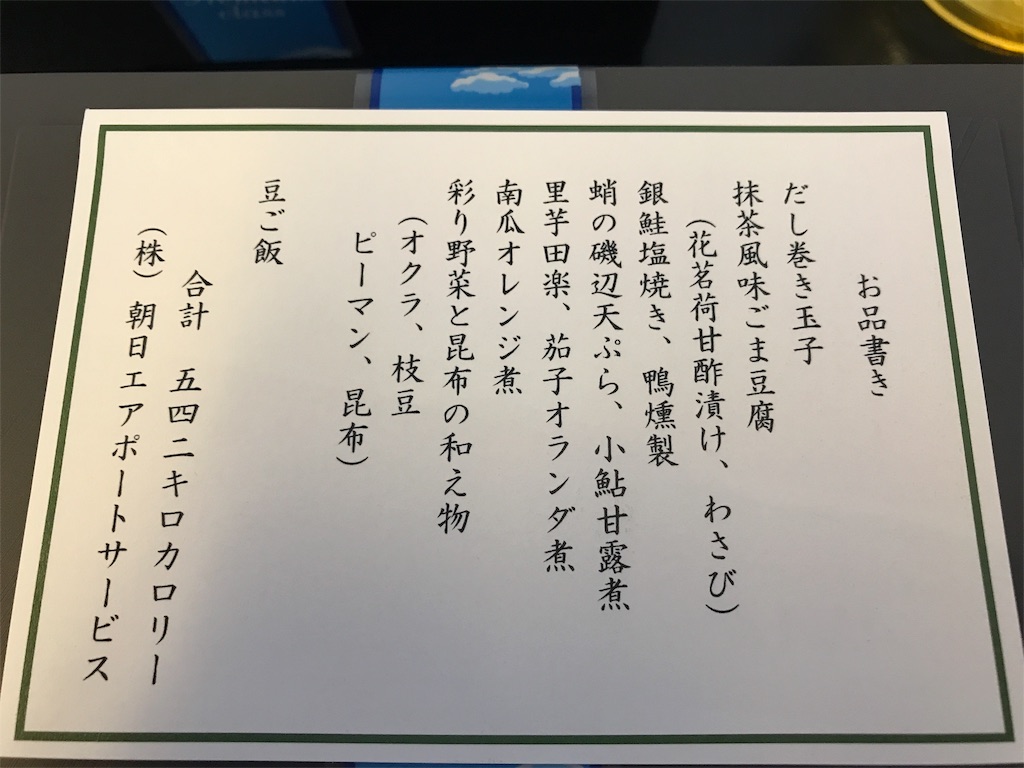 お品書き
だし巻き玉子
抹茶風味ごま豆腐
(花茗荷甘酢漬け、わさび)
銀鮭塩焼き、鴨燻製
蛸の磯辺天ぷら、小鮎甘露煮
里芋田楽、茄子オランダ煮
南瓜オレンジ煮
彩り野菜と昆布の和え物
(オクラ、枝豆
ピーマン、昆布)
豆ご飯
合計 五四二キロカロリー
(株) 朝日エアポートサービス
class